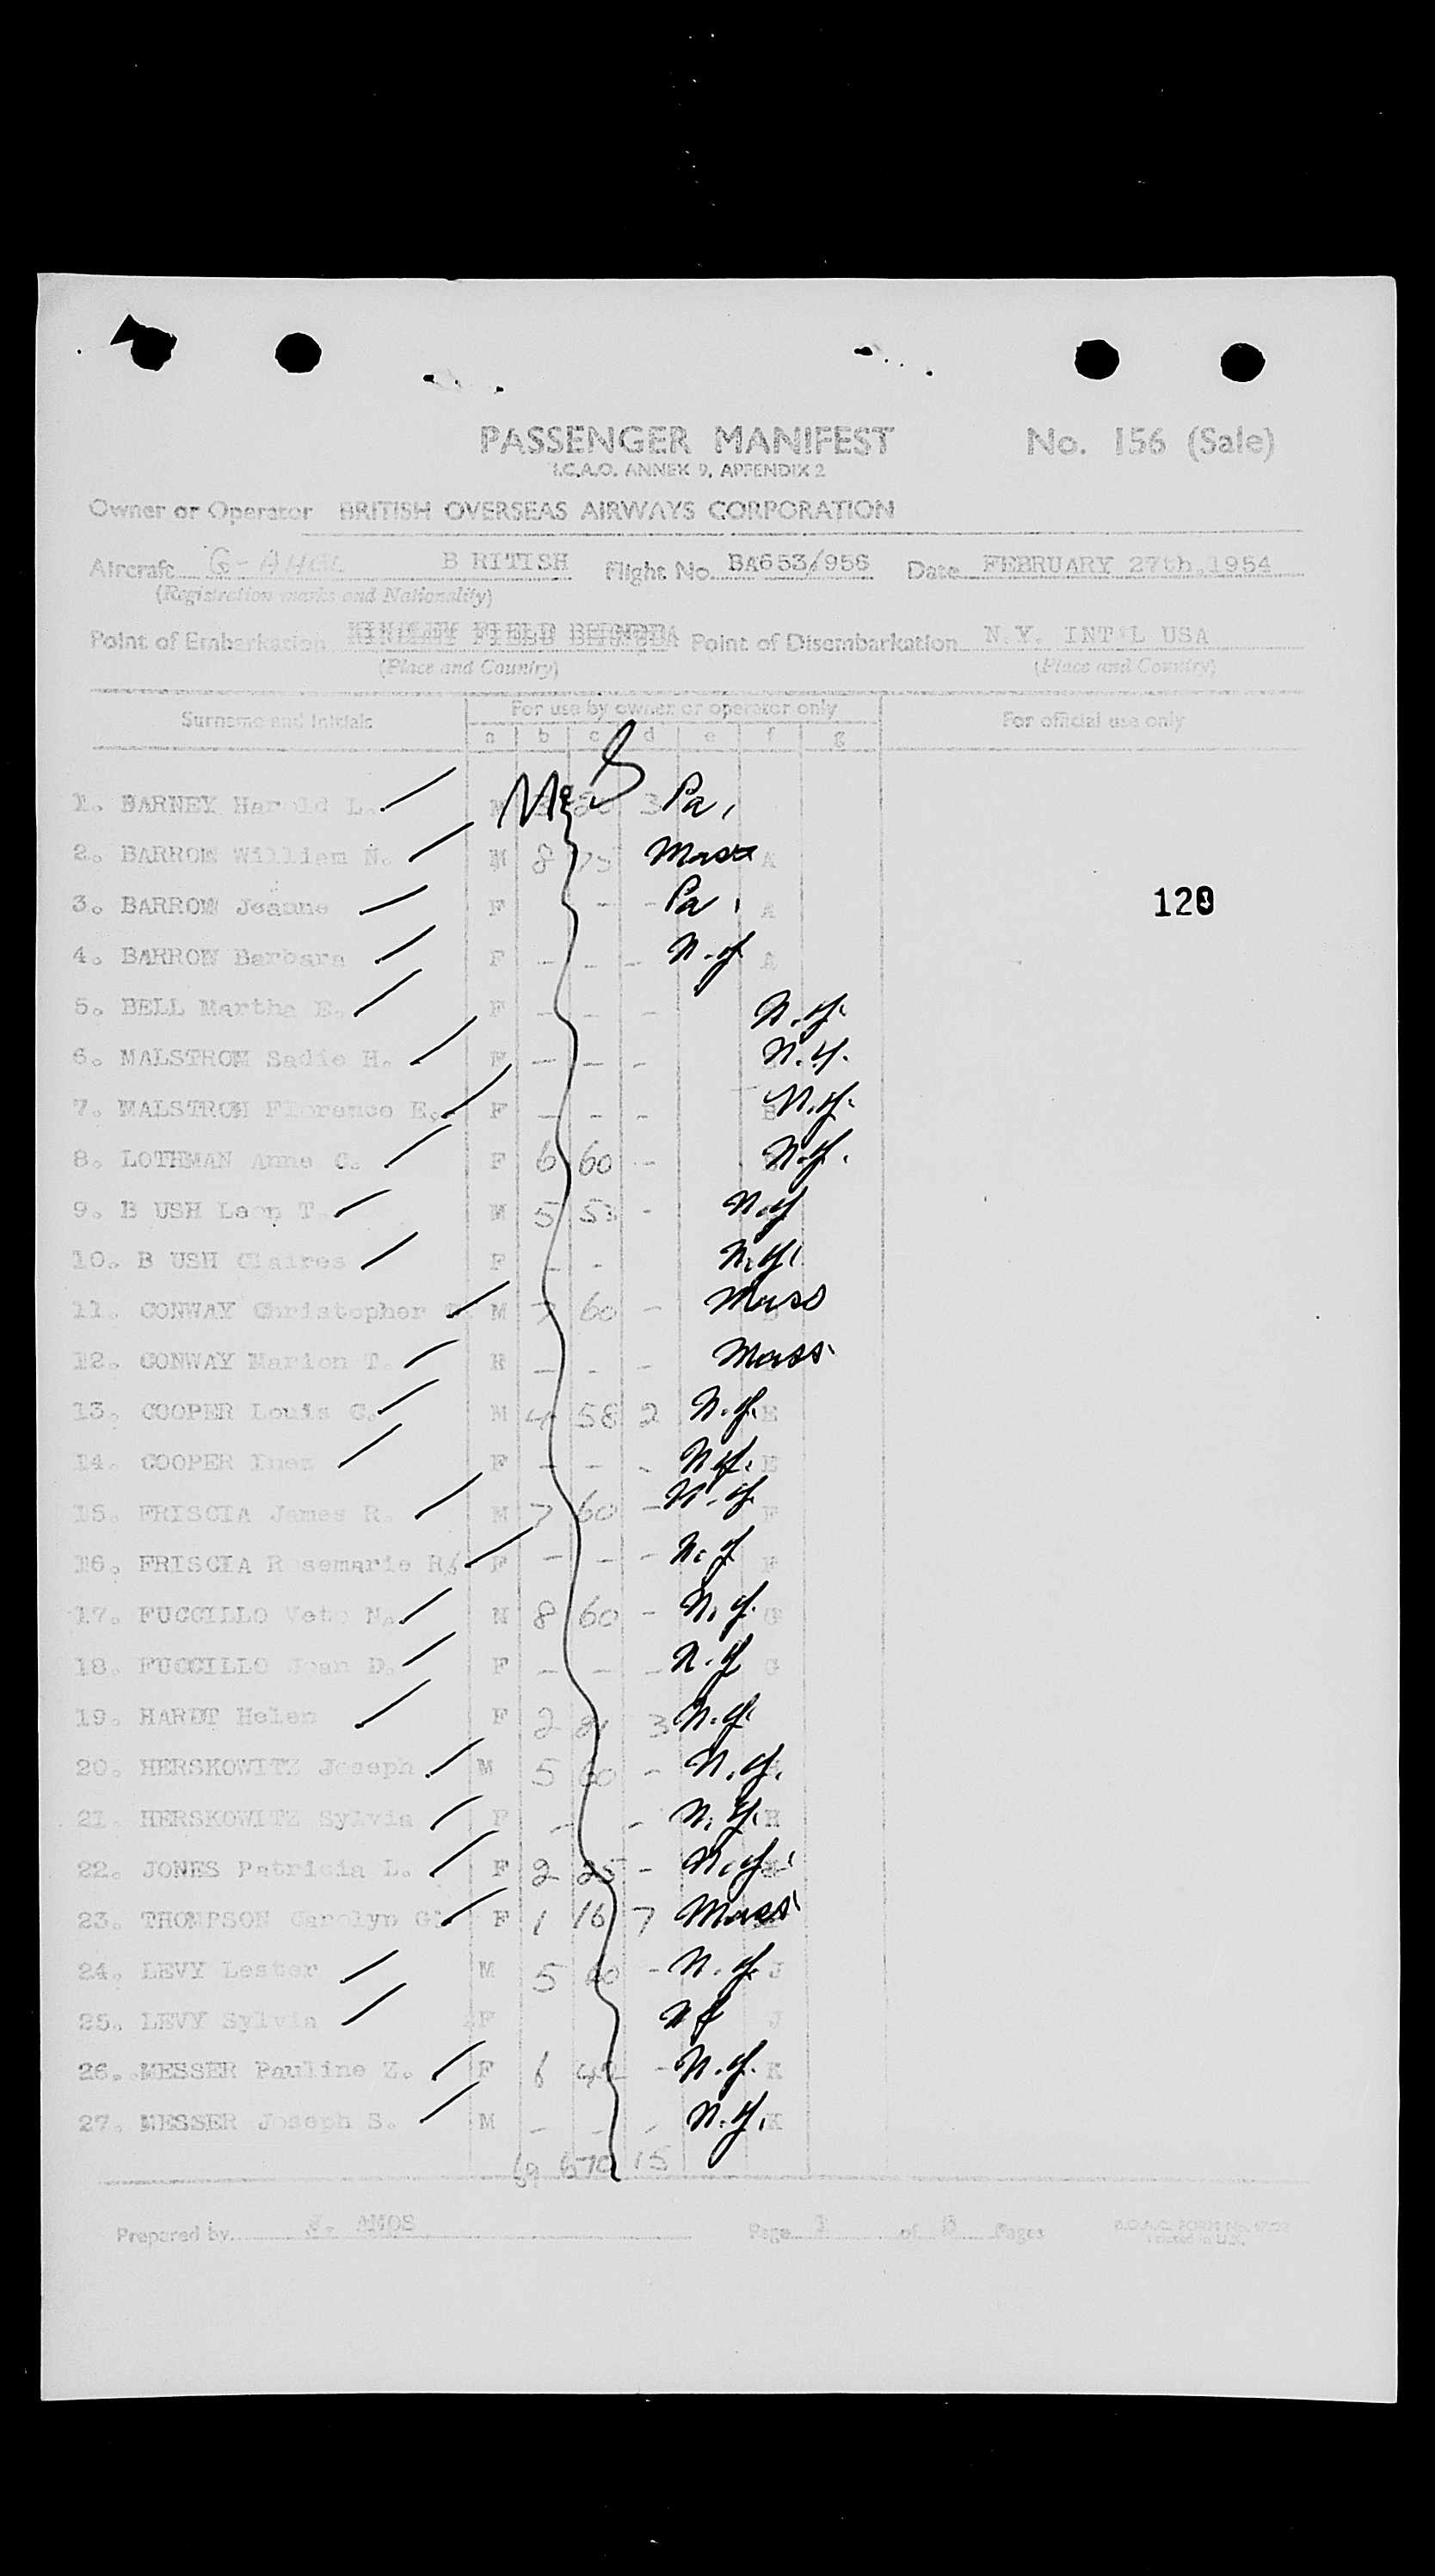 PASSENGER MANIFEST No. 156 (Sale)
I.C.A.O. ANNEX 9, APPENDIX 2
Owner or Operator BRITISH OVERSEAS AIRWAYS CORPORATION
Aircraft G-AHGL B RITISH Flight No. BA653/956 Date FEBRUARY 27th,1954
(Registration marks and Nationality)
Point of Embarkation KINDLEY FIELD BERMUDA Point of Disembarkation N.Y. INT'L USA
(Place and Country) (Place and Country)
Surname and Initials For use by owner or operator only For official use only
a b c d e f g
1. BARNEY Harold L. M 3 Pa.
2. BARROW William N. M 8 75 Mass A
3. BARROW Jeanne F - - Pa. A
120
4. BARROW Barbara F - - - N.Y A
5. BELL Martha E. F - - - N.Y.
6. MALSTROM Sadie H. F - - - N.Y.
7. MALSTROM Florence E. F - - - N.Y. B
8. LOTHMAN Anne C. F 6 60 - N.Y.
9. B USH Leon T. M 5 53 - N.Y
10. B USH Claires F - - N.Y.
11. CONWAY Christopher M 7 60 - Mass
12. CONWAY Marion T. - - - Mass.
13. COOPER Louis G. M 4 58 2 N.Y. E
14. COOPER Inez F - - - N.Y. E
15. FRISCIA James R. M 7 60 - N.Y. F
16. FRISCIA Rosemarie R. F - - - N.Y F
17. FUCCILLO Veto N. M 8 60 - N.Y. G
18. FUCCILLO Joan D. F - - - N.Y G
19. HARDT Helen F 2 21 3 N.Y.
20. HERSKOWITZ Joseph M 5 60 - N.Y.
21. HERSKOWITZ Sylvia F - - N.Y. H
22. JONES Patricia L. F 2 25 - N.Y.
23. THOMPSON Carolyn G. F 1 16 7 Mass
24. LEVY Lester M 5 60 - N.Y. J
25. LEVY Sylvia F NY J
26. MESSER Pauline Z. F 6 42 - N.Y. K
27. MESSER Joseph S. M - - - N.Y. K
69 670 15
Prepared by AMOS Page 1 of Pages B.O.A.C. FORM No.
Printed in U.K.